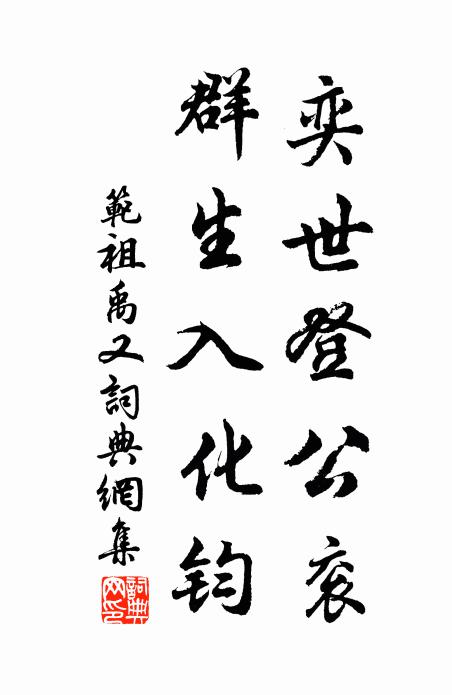 奕世登公衮
群生入化鈞
範祖禹又詞典網集
詞典网印